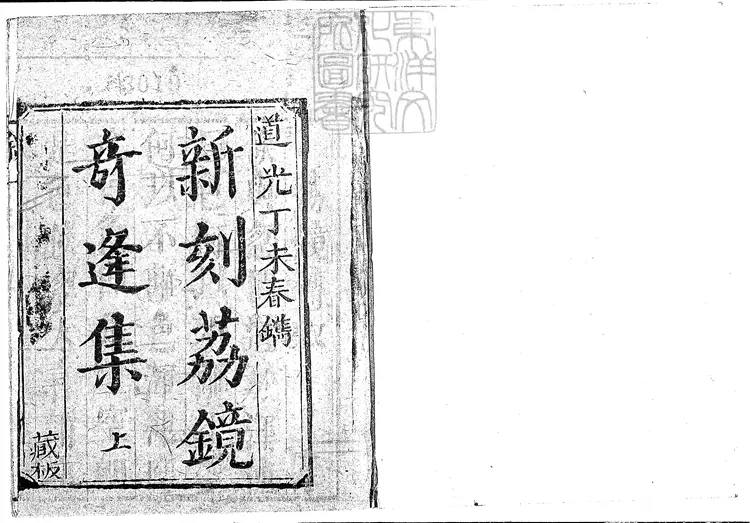 道光丁未春鐫
新刻荔鏡
奇逢集 上
藏板
東洋文
化研究
所圖書